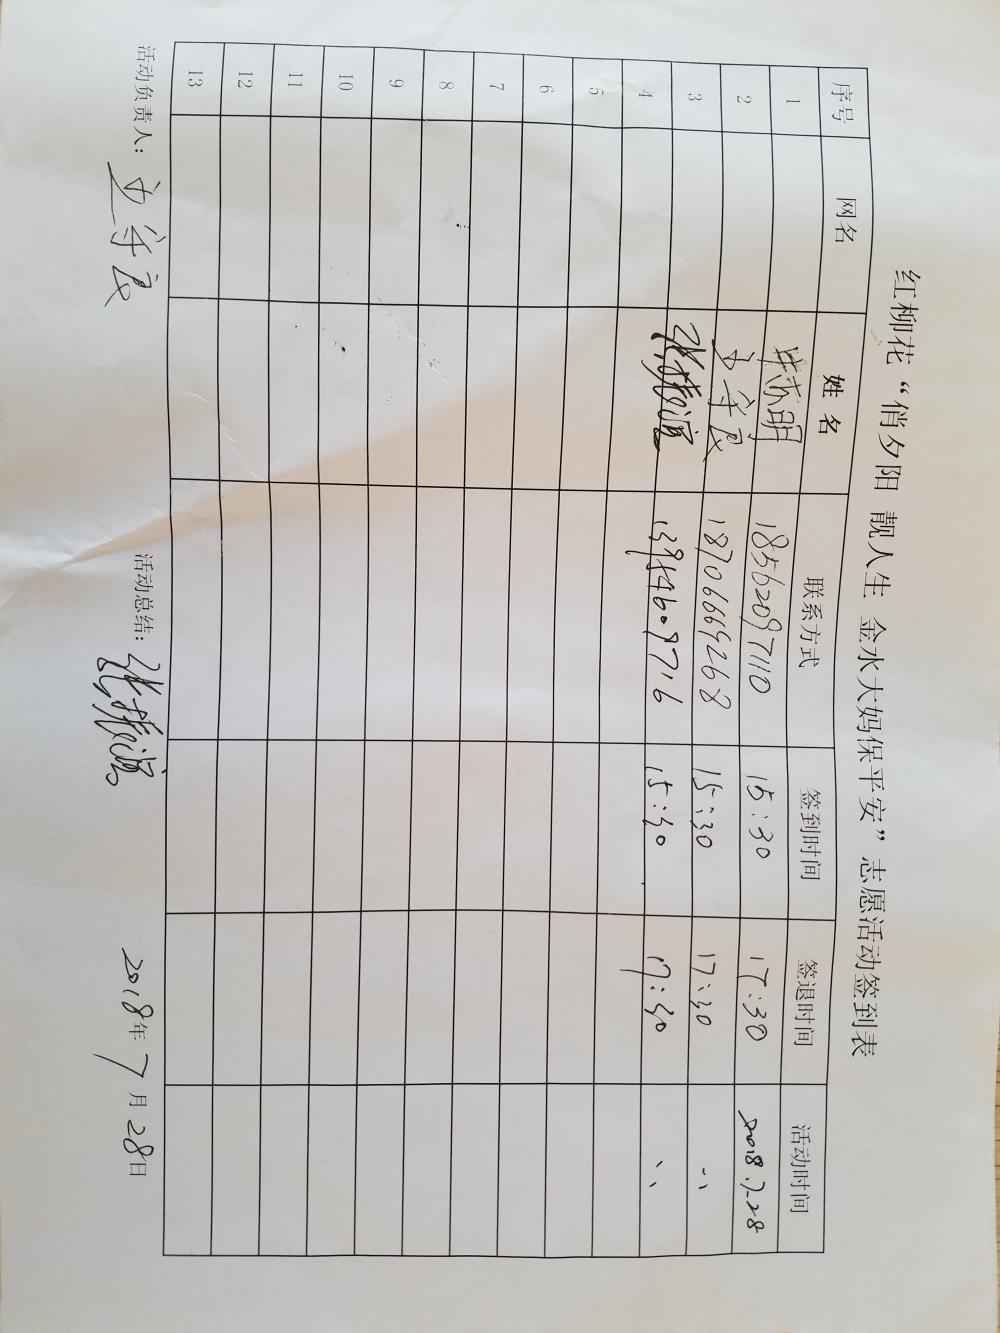 红柳花“俏夕阳 靓人生 金水大妈保平安”志愿活动签到表
序号 网名 姓 名 联系方式 签到时间 签退时间 活动时间
1 18562097110 15:30 17:30 2018.7.28
2 18706669268 15:30 17:30 〃
3 张振海 13954609716 15:30 17:30 〃
4
5
6
7
8
9
10
11
12
13
活动负责人： 活动总结： 2018年7月28日